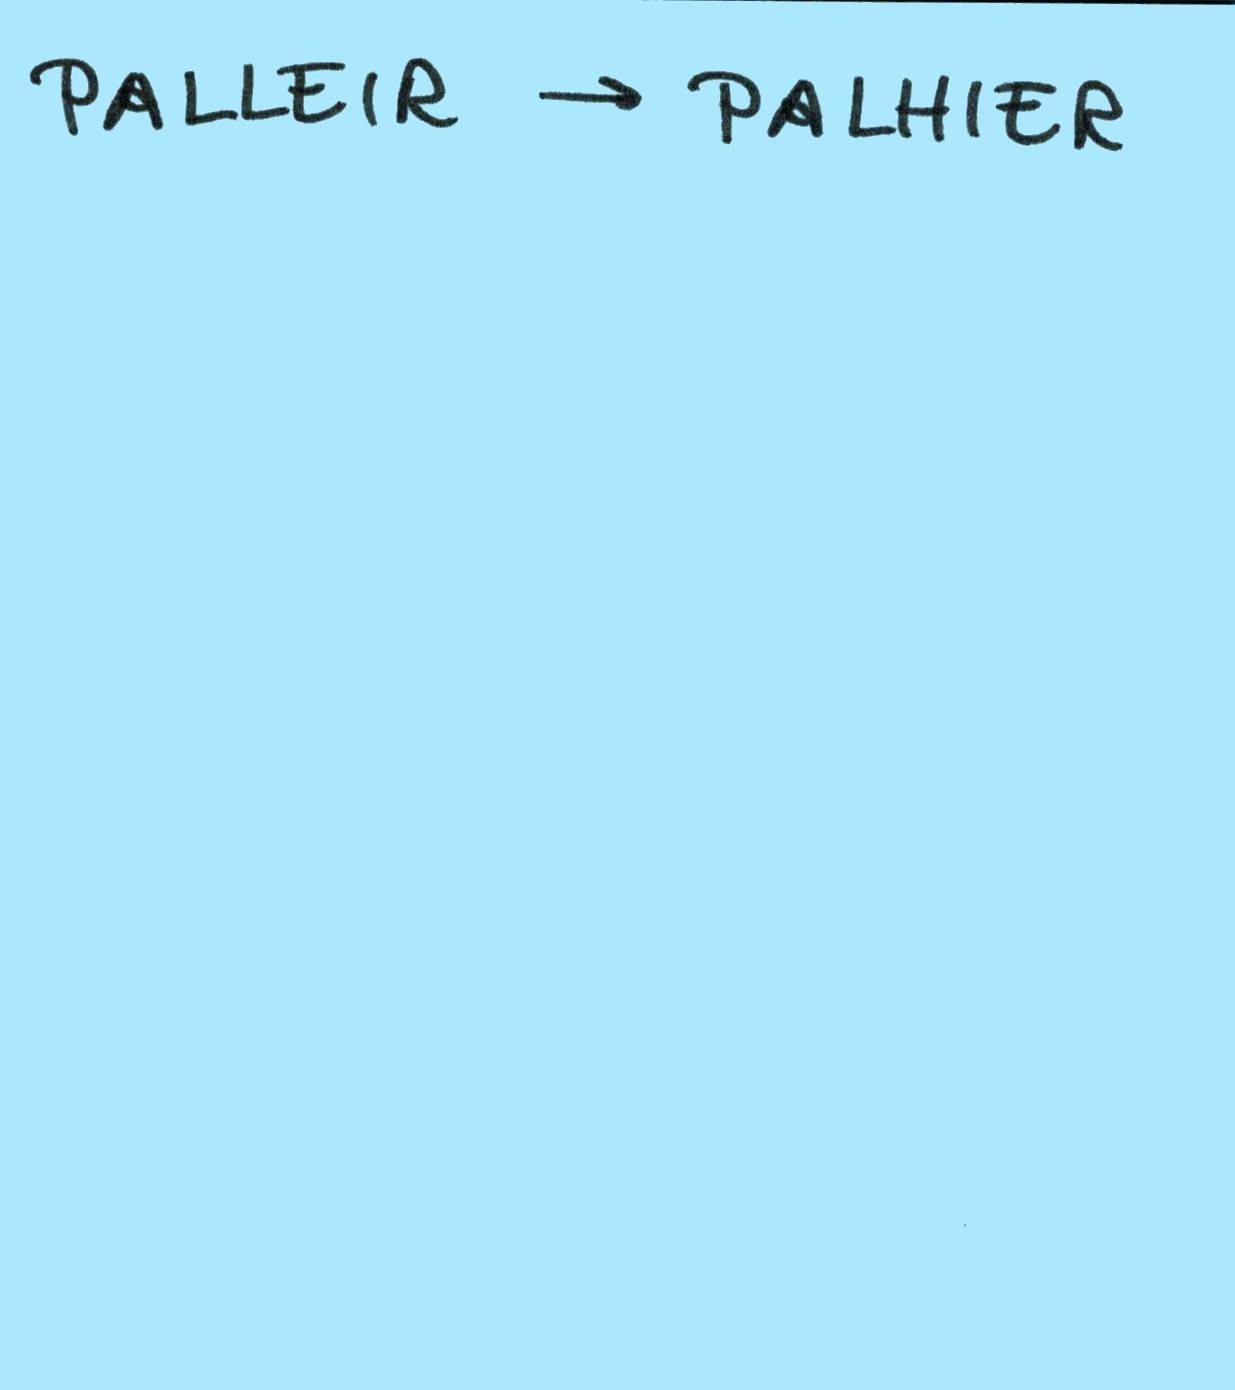 PALLEIR → PALHIER